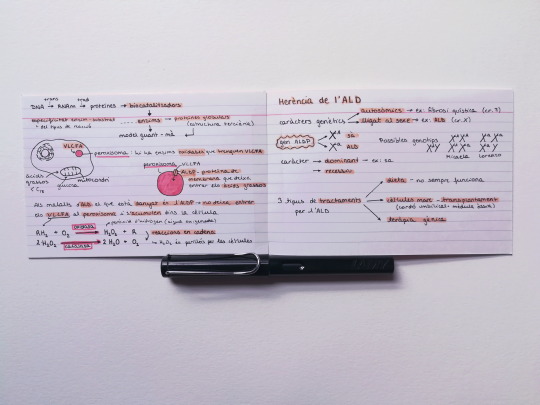 trans trad
DNA → RNAm → proteïnes → biocatalitzadors
especificitat enzim-substrat ...... enzims → proteïnes globulars
(estructura terciària)
model guant - mà
VLCFA
peroxisoma: hi ha enzims oxidases que trenquen VLCFA
àcids grassos < C
glucosa
mitocondri
peroxisoma VLCFA
ALDP - proteïna de membrana que deixa entrar els àcids grassos
Als malalts d'ALD el que està danyat és l'ALDP - no deixa entrar
els VLCFA al peroxisoma i s'acumulen dins la cèl·lula
RH₂ + O₂ oxidasa H₂O₂ + R
2 H₂O₂ catalasa 2 H₂O + O₂
reaccions en cadena
→ H₂O₂ és perillós per les cèl·lules
Herència de l'ALD
caràcters genètics
autosòmics → ex: fibrosi quística (cr. 7)
lligat al sexe → ex: ALD (cr. X)
gen ALDP
sa
ALD
Possibles genotips
Micaela Lorenzo
caràcter → dominant → ex: sa
→ recessiu
3 tipus de tractaments
per l'ALD
dieta → no sempre funciona
cèl·lules mare → transplantament
(cordó umbilical - mèdul·la òssia)
teràpia gènica